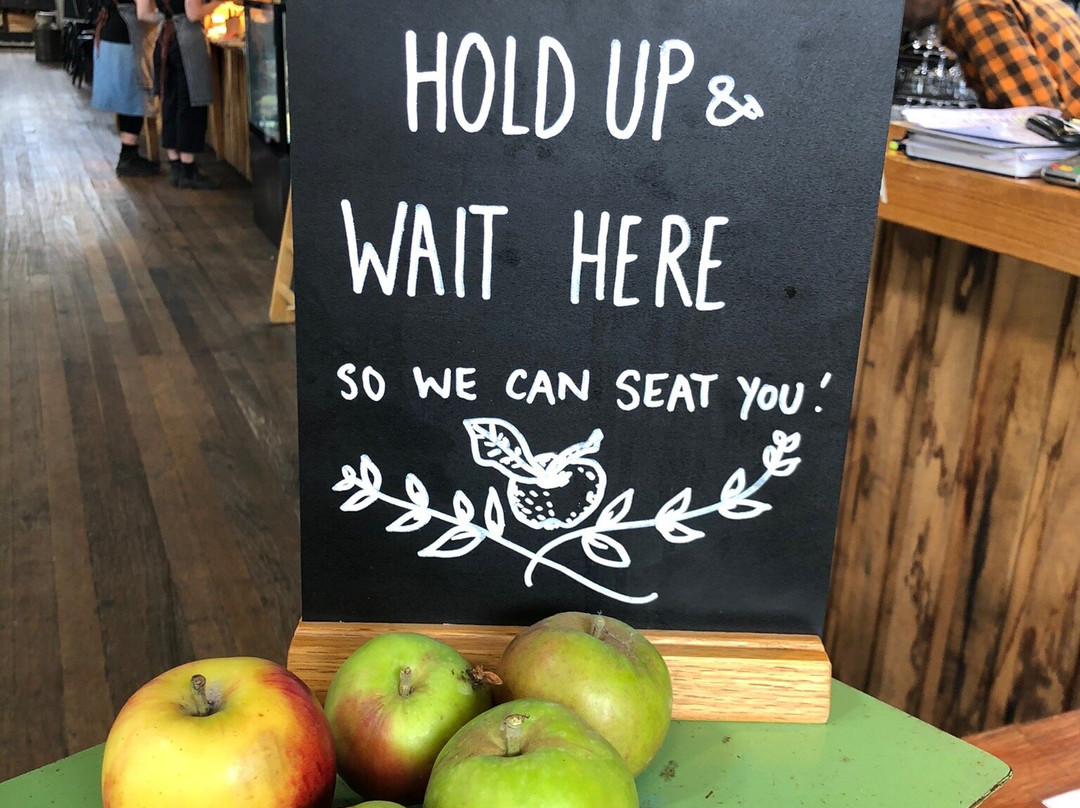 HOLD UP &
WAIT HERE
SO WE CAN SEAT YOU!